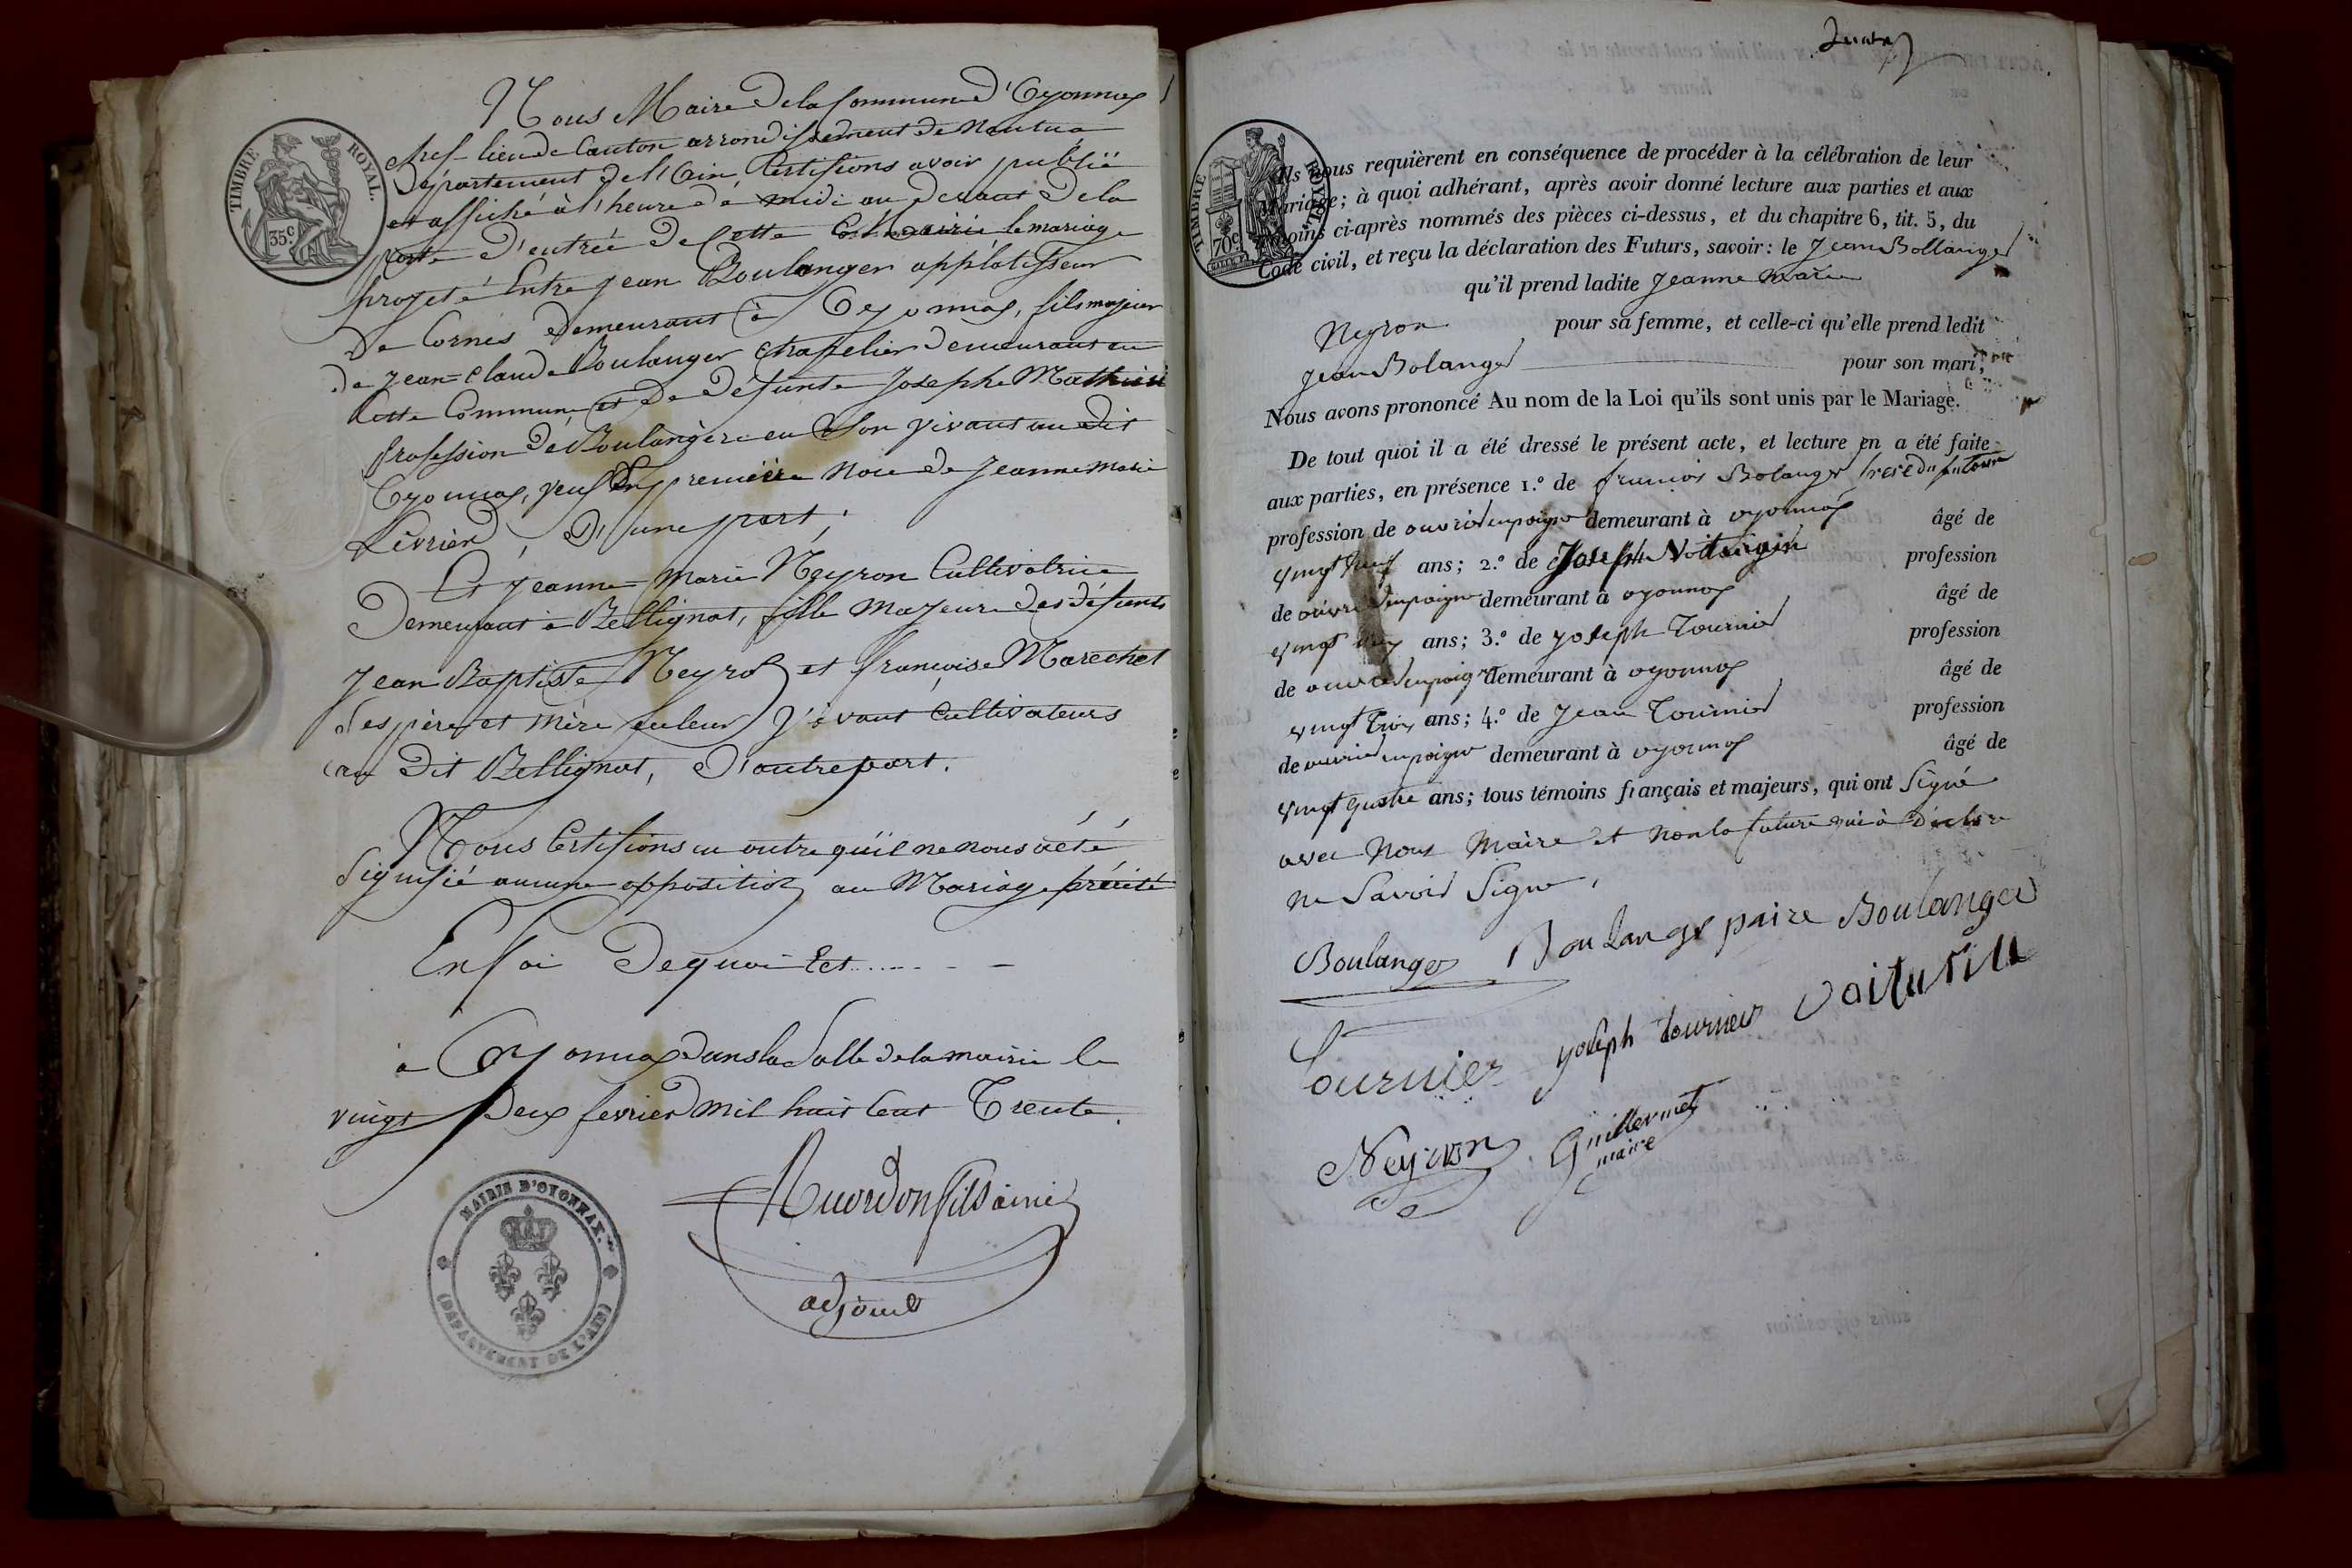 Nous Maire de la Commune d'Oyonnax
chef-lieu de Canton arrondissement de Nantua
Département de l'Ain Certifions avoir publié
et affiché à l'heure de midi au devant de la
porte d'entrée de Cette Mairie le mariage
projeté Entre Jean Boulanger applatisseur
De Cornes demeurant à Oyonnax, fils majeur
de Jean-Claude Boulanger Chapelier demeurant en
Cette Commune et de défunte Josephe
profession de Boulangère en Son vivant au dit
Oyonnax, veuf En première noce de Jeanne Marie
Lévrier, D'une part;
Et Jeanne Marie Neyron Cultivatrice
Demeurant à Bellignat, fille Majeure des défunts
Jean Baptiste Neyron et françoise Marechal
Ses père et mère en leur vivant Cultivateurs
au Dit Bellignat, D'autre part.
Nous Certifions en outre qu'il ne nous a été
Signifié aucune opposition au Mariage précité
En foi De quoi Ect.......
à Oyonnax dans la Salle de la mairie le
vingt Deux fevrier Mil huit Cent Trente.
fils ainé
adjoint
TIMBRE ROYAL
35 c.
MAIRIE D'OYONNAX.
(DÉPARTEMENT DE L'AIN)
TIMBRE ROYAL
70 c.
Ils nous requièrent en conséquence de procéder à la célébration de leur
Mariage; à quoi adhérant, après avoir donné lecture aux parties et aux
témoins ci-après nommés des pièces ci-dessus, et du chapitre 6, tit. 5, du
Code civil, et reçu la déclaration des Futurs, savoir: le Jean Bollanger
qu'il prend ladite Jeanne Marie
Neyron pour sa femme, et celle-ci qu'elle prend ledit
Jean Bolanger pour son mari;
Nous avons prononcé Au nom de la Loi qu'ils sont unis par le Mariage.
De tout quoi il a été dressé le présent acte, et lecture en a été faite
aux parties, en présence 1.º de francois Bolanger frere du futeur
profession de ouvrier en peigne demeurant à oyonnax âgé de
vingt ans; 2.º de Joseph Voiturier profession
de ouvrier en peigne demeurant à oyonnax âgé de
vingt ans; 3.º de Joseph Tournier profession
de ouvrier en peigne demeurant à oyonnax âgé de
vingt trois ans; 4.º de Jean Tournier profession
de ouvrier en peigne demeurant à oyonnax âgé de
vingt quatre ans; tous témoins français et majeurs, qui ont Signé
avec Nous Maire et Non la future qui a déclaré
ne Savoir Signer,
Boulanger Boulanger paire Boulanger
Tournier yoseph tournier
Neyron Guillermet
maire